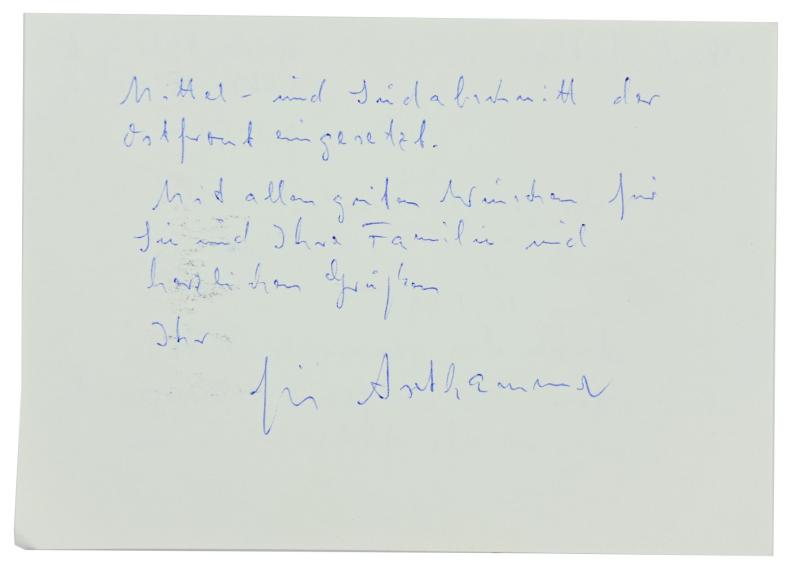 Mittel- und Südabschnitt der
Ostfront eingesetzt.
Mit allen guten Wünschen für
Sie und Ihre Familie und
herzlichen Grüßen
Ihr